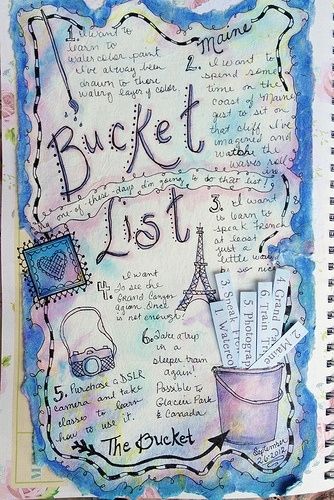 1. I want to
learn to
watercolor paint
I've always been
drawn to those
watery layers of color.
Maine
2. I want to
spend some
time on the
coast of Maine
just to sit on
that cliff I've
imagined and
watch the
waves roll
in
Bucket
one of these days I'm going to do that list!
List
3. I want
to learn to
speak French
at least
just a
little
way
so nice
4. I want
to see the
Grand Canyon
again. Once
is not enough!
6. Take a trip
in
sleeper train
again!
Possible to
Glacier Park
& Canada
5. Purchase a DSLR
camera and take
classes to learn
how to use it.
The Bucket
3. Speak Fre
1. Waterco
5. Photograph
6. Train
4. Grand C
2. Maine
September
26.2012